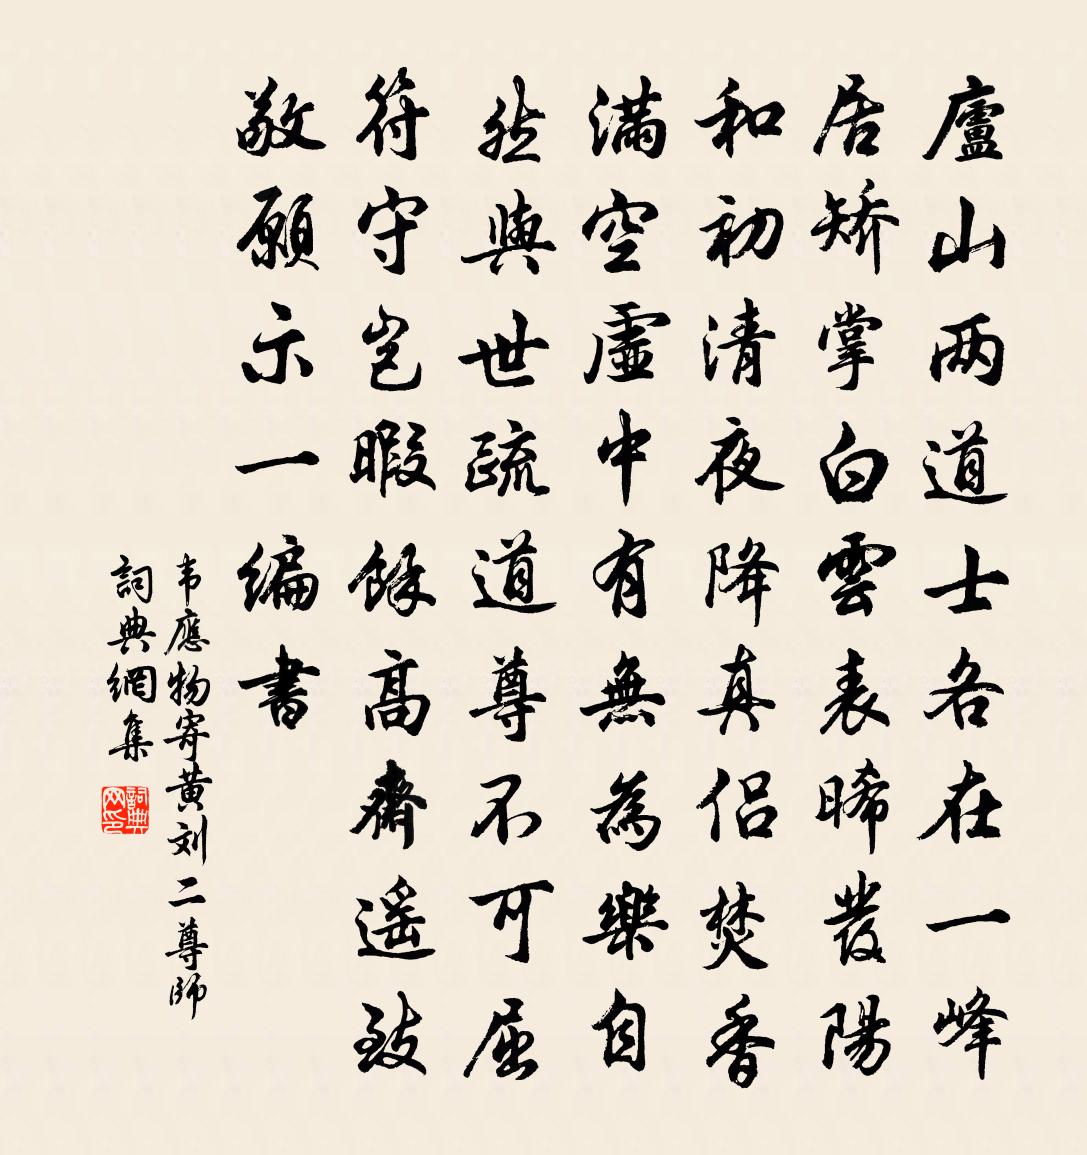 廬山两道士各在一峰
居矫掌白雲表晞發陽
和初清夜降真侣焚香
滿空虛中有無為樂自
然與世疏道尊不可屈
符守岂暇餘高齋遥致
敬願示一编書
韦應物寄黄刘二尊師
詞典網集
詞典网印